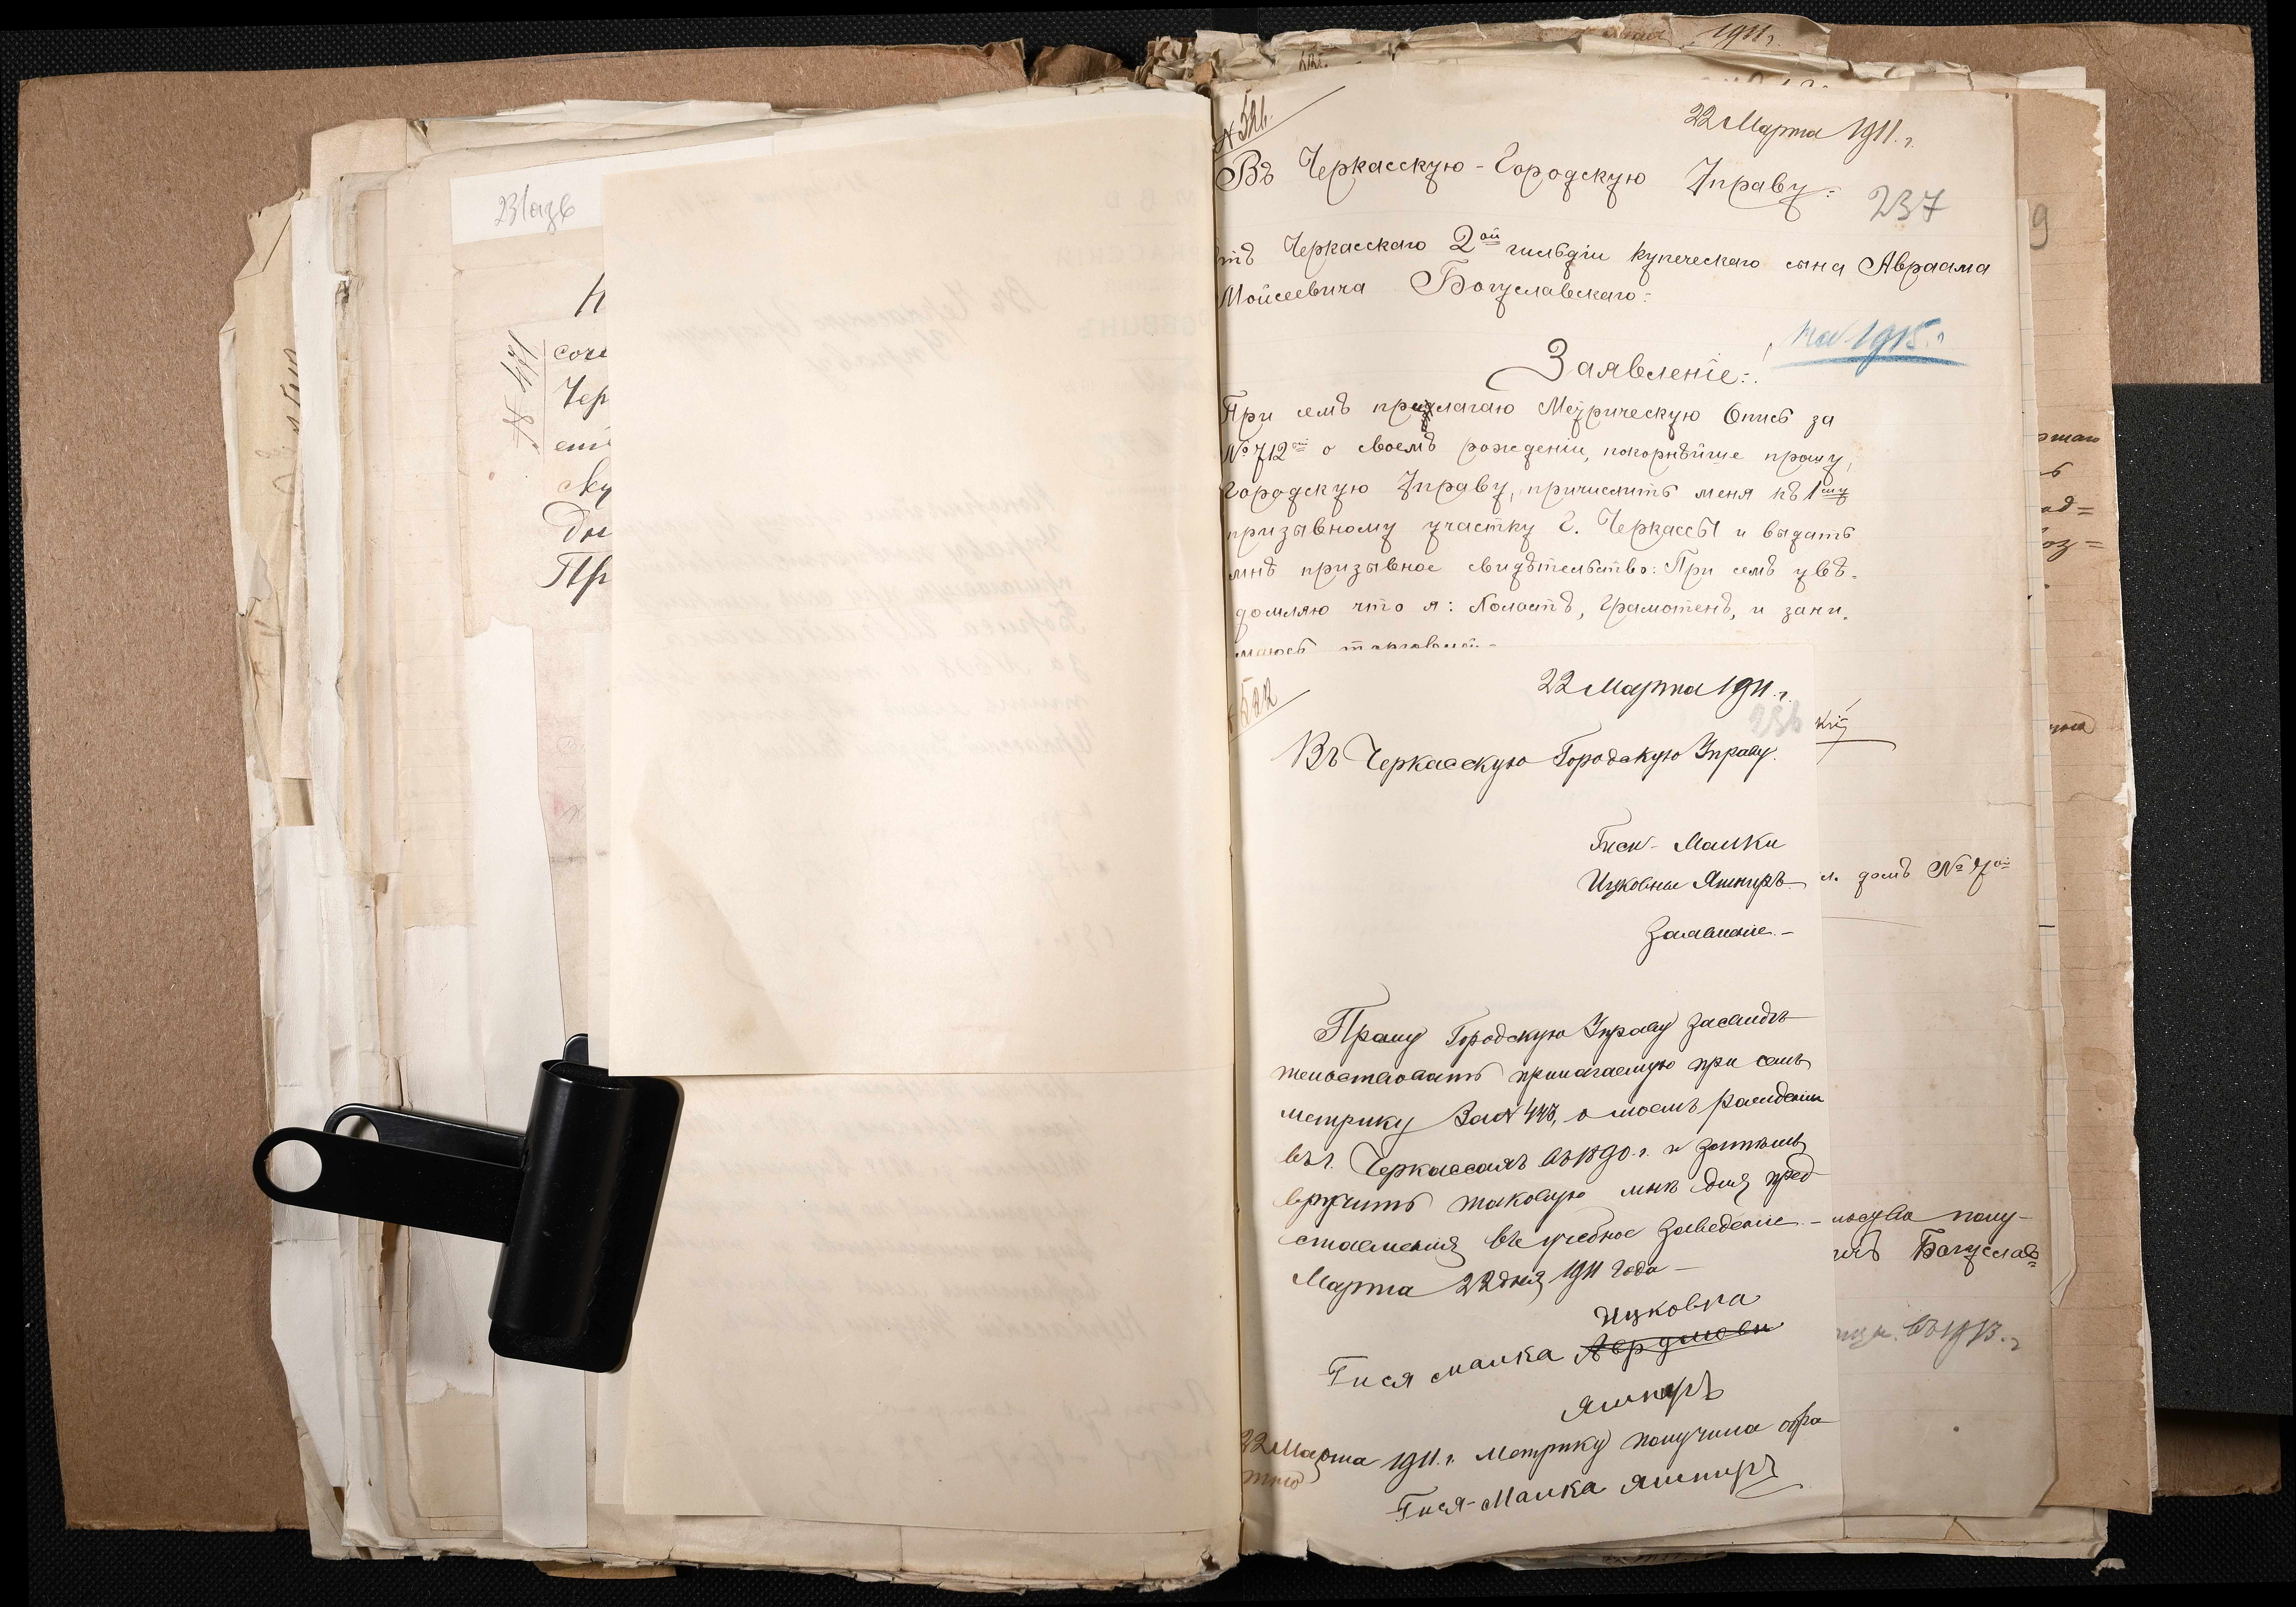 1911 г.
231 аз в
№ 471
сочи
Чер
ску
Пр
№ 521.
22 Марта 1911. г.
Въ Черкасскую-Городскую Управу:
237
9
тъ Черкасскаго 2ой гильдіи купеческаго сына Авраама
Мойсеевича Богуславскаго:
1915. г
Заявленіе:
При семъ прилагаю Метрическую Опись за
№ 712 о своемъ рожденіи, покорнѣйше прошу,
Городскую Управу, причислить меня къ 1му
призывному участку г. Черкассы и выдать
мнѣ призывное свидѣтельство: При семъ увѣ-
домляю что я: Холостъ, Грамотенъ, и зани-
маюсь торговлей-
№ 522
22 Марта 1911. г.
236
кій
Въ Черкасскую Городскую Управу.
Гиси-Малки
Ицковны Яшпиръ
л. домъ №
Заявленіе.-
Прошу Городскую Управу засвидѣ-
тельствовать прилагаемую при семъ
метрику за № 443, о моемъ рожденіи
въ г. Черкассахъ въ 1890. г. и затѣмъ
вручить таковую мнѣ для пред-
ставленія въ учебное заведеніе.-
Марта 22 дня 1911 года-
полу-
Богуслав=
Ицковна
Гися малка
Яшпиръ
22 Марта 1911. г. Метрику получила обра-
тно
Гися-Малка Яшпиръ